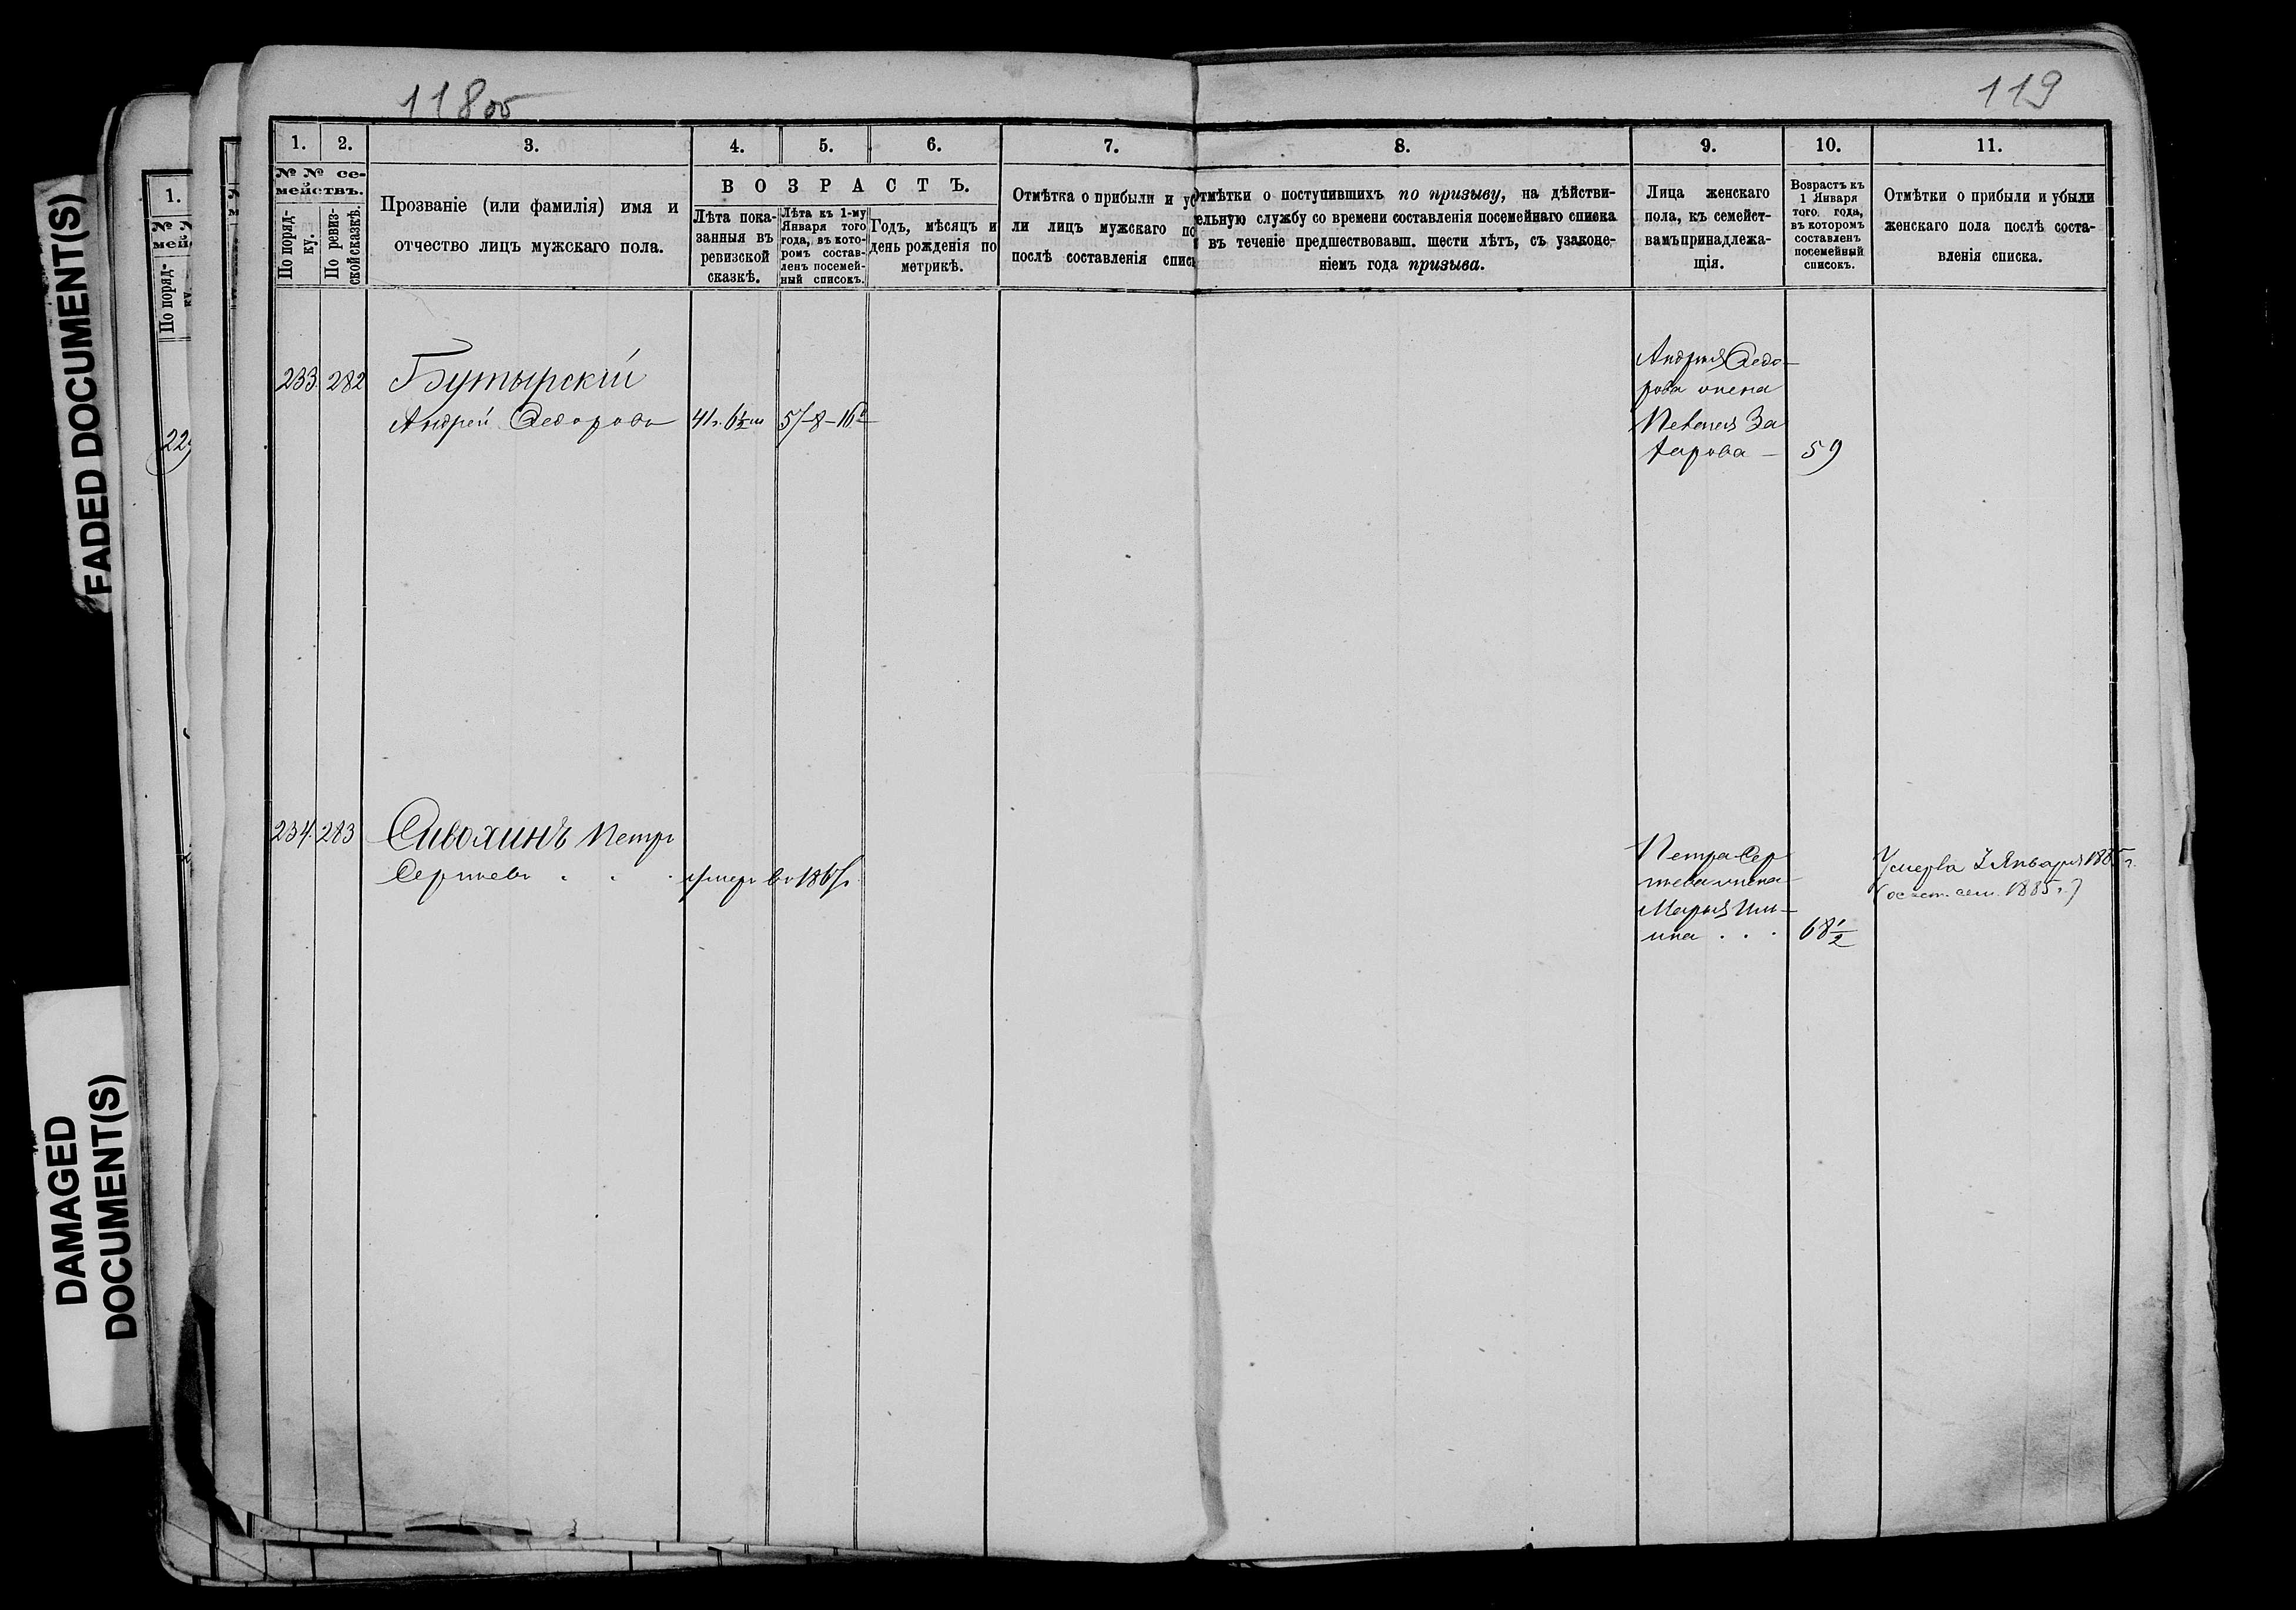 FADED DOCUMENT(S)
DAMAGED
DOCUMENT(S)
118об
119
1.
2.
3.
4.
5.
6.
7.
8.
9.
10.
11.
№ № се-
мействъ.
По поряд-
ку.
По ревиз-
ской сказкѣ.
Прозваніе (или фамилія) имя и
отчество лицъ мужскаго пола.
ВОЗРАСТЪ.
Лѣта пока-
занныя въ
ревизской
сказкѣ.
Лѣта къ 1-му
Января того
года, въ кото-
ромъ состав-
ленъ посемей-
ный списокъ.
Годъ, мѣсяцъ и
день рожденія по
метрикѣ.
Отмѣтка о прибыли и уб
ли лицъ мужскаго по
послѣ составленія спис
Отмѣтки о поступившихъ по призыву, на дѣйстви-
ельную службу со времени составленія посемейнаго списка
въ теченіе предшествовавш. шести лѣтъ, съ узаконе-
ніемъ года призыва.
Лица женскаго
пола, къ семейст-
вамъ принадлежа-
щія.
Возрастъ къ
1 Января
того года,
въ которомъ
составленъ
посемейный
списокъ.
Отмѣтки о прибыли и убыли
женскаго пола послѣ соста-
вленія списка.
1.
По поряд-
229
233. 282 Бутырскій
Андрей Ѳедоровъ 41г. 6½м 57-8-16
Андрея Ѳедо-
рова жена
Пелагея За
харова — 59
234. 283 Сивохинъ Петръ
Сергѣевъ . . . умеръ въ 1867г.
Петра Сер
гѣева жена
Марья Иль-
ина . . . 68½
Умерла Января 1885 г.
1885 г.)